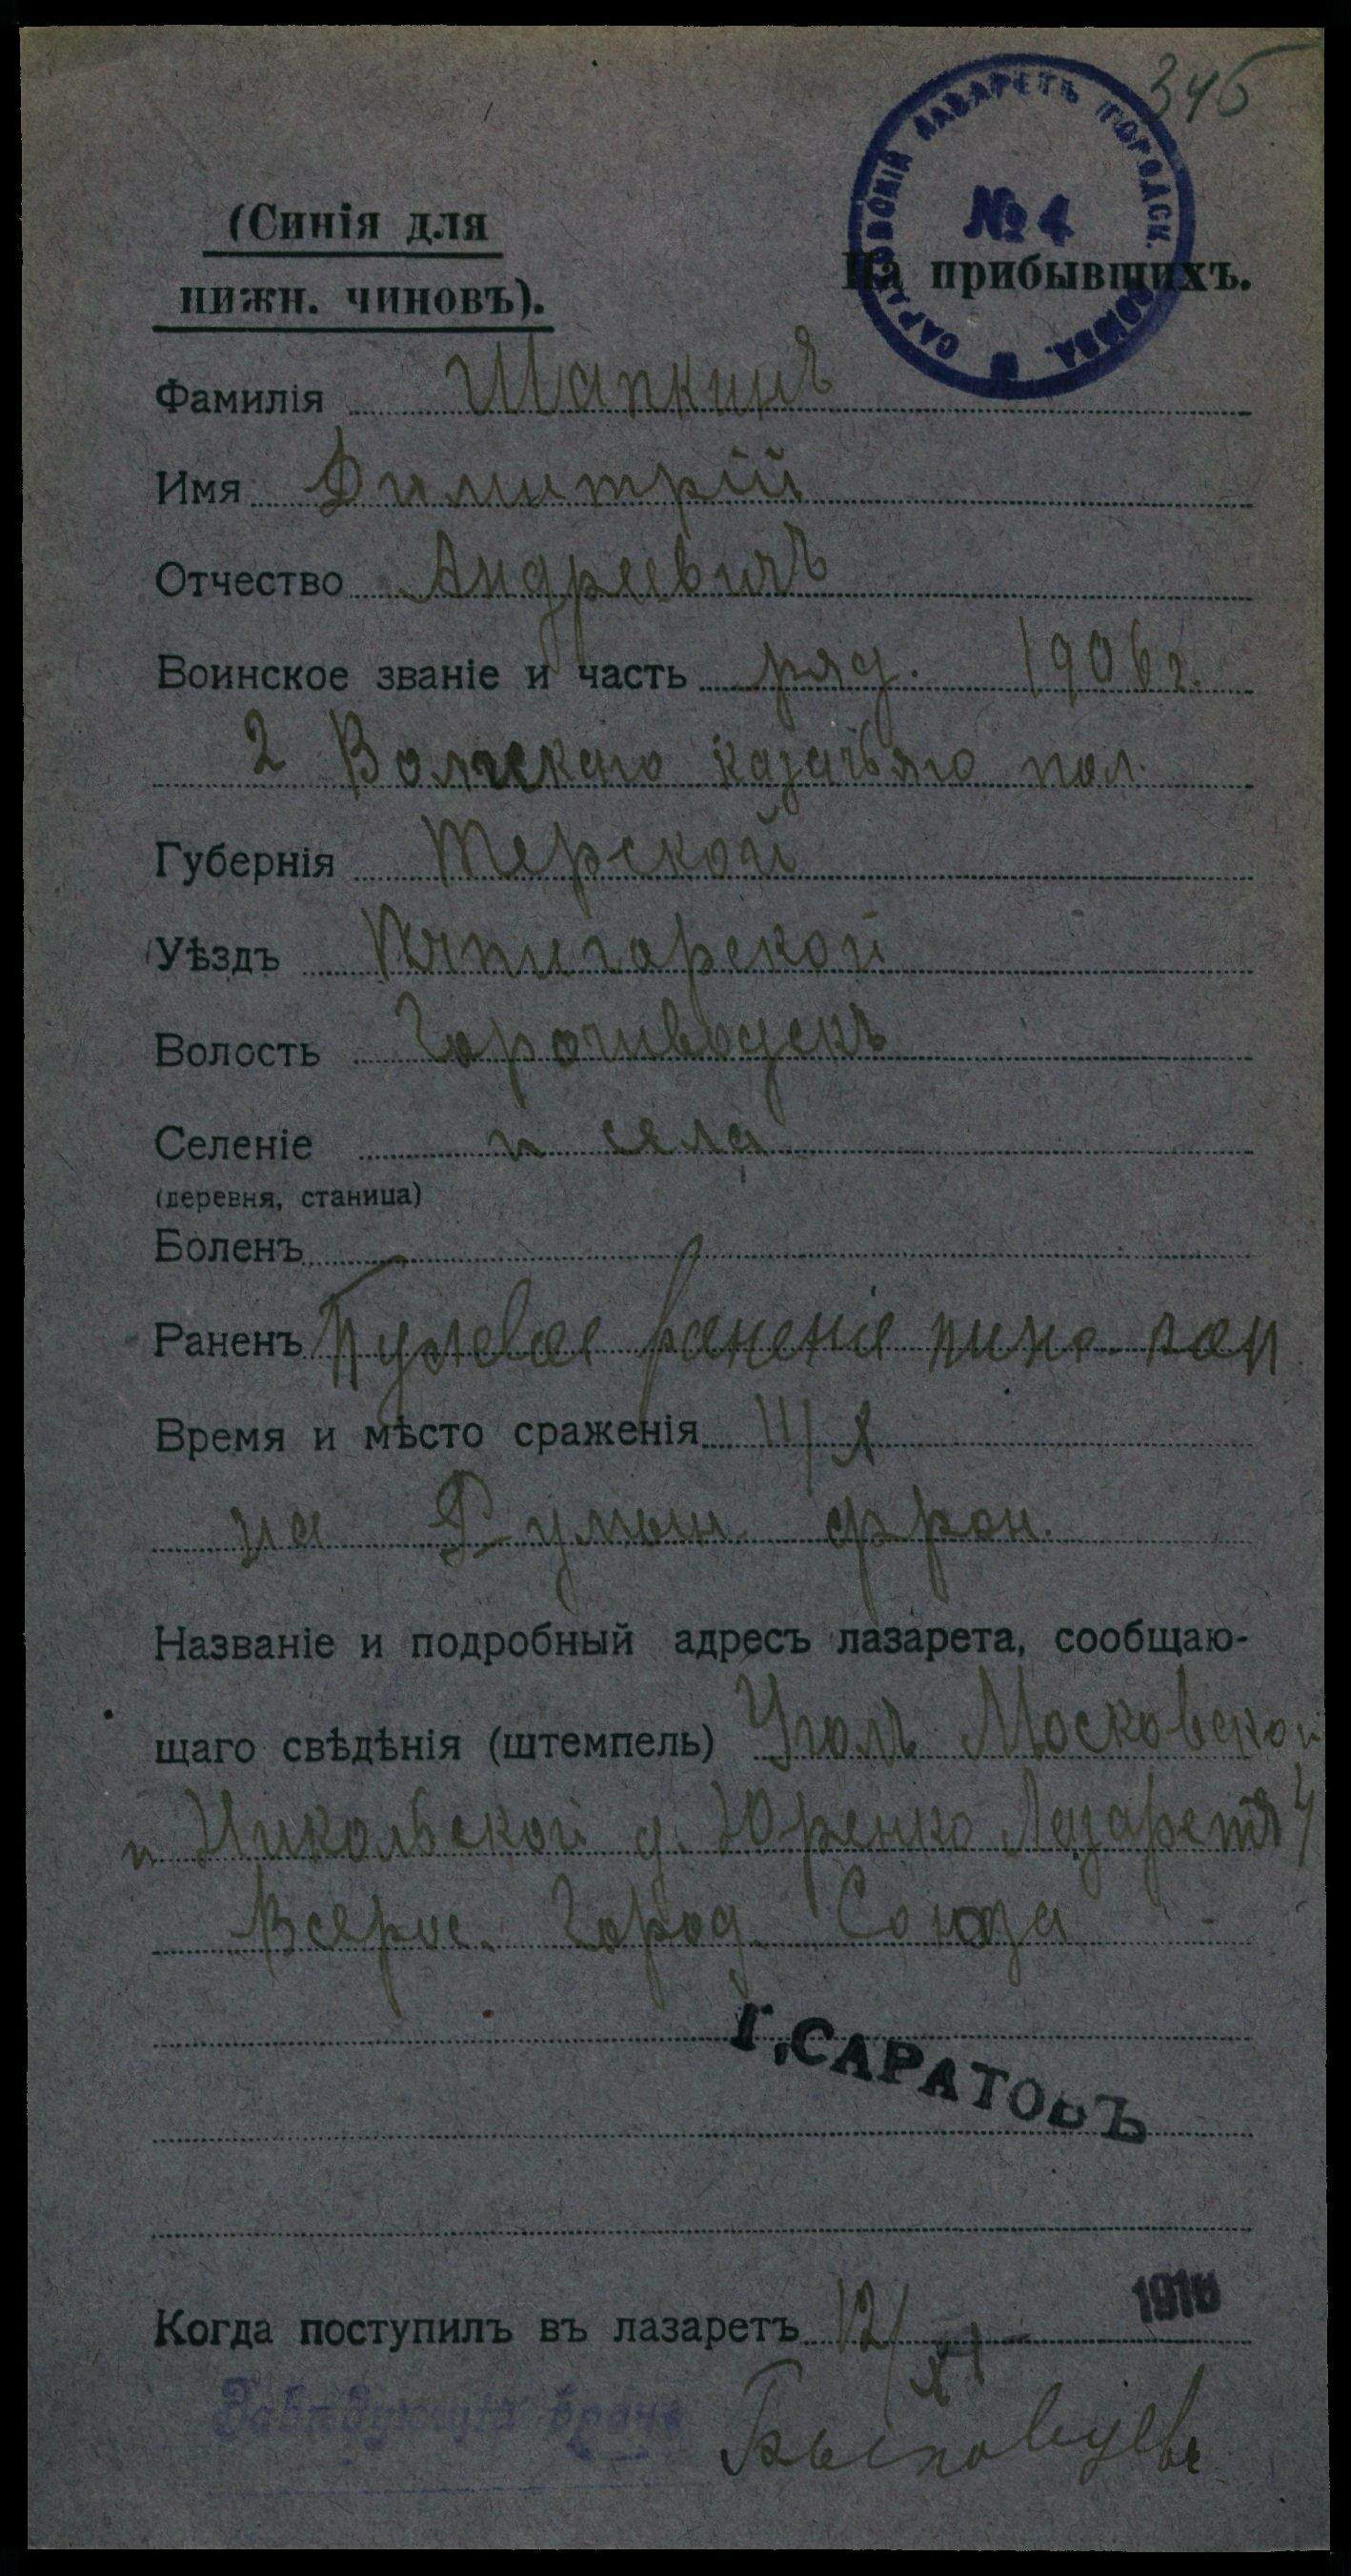 345
САРАТОВСКІЙ ЛАЗАРЕТЪ ГОРОДСК. СОЮЗА.
№ 4
(Синія для
нижн. чиновъ).
На прибывшихъ.
Фамилія Шапкинъ
Имя Димитрій
Отчество Андреевичъ
Воинское званіе и часть ряд. 1906 г.
2 Волгскаго казачьяго пол.
Губернія Терской
Уѣздъ Пятигорской
Волость Горячиводскъ
Селеніе и села
(деревня, станица)
Боленъ
Раненъ Пулевое раненіе
Время и мѣсто сраженія III/X
на Румын фрон.
Названіе и подробный адресъ лазарета, сообщаю-
щаго свѣдѣнія (штемпель) Уголъ Московской
и Никольской д. Юренко Лазаретъ 4
Всерос. Город. Союза
Г. САРАТОВЪ
Когда поступилъ въ лазаретъ 12/XI 1916
Завѣдующій врачъ